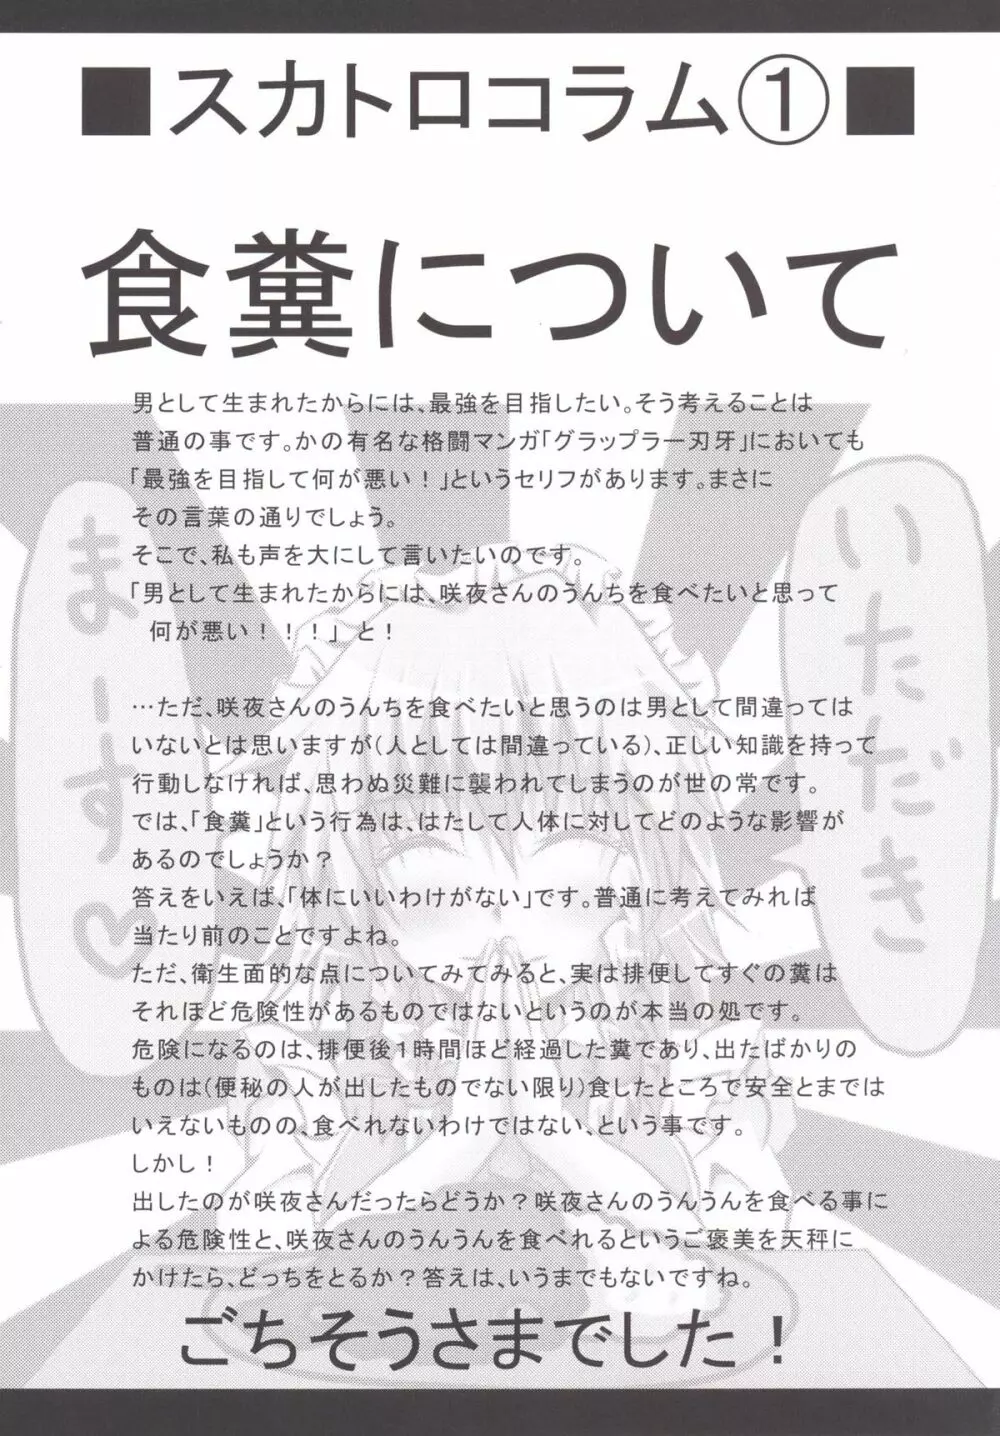 ■スカトロコラム①■
食糞について
男として生まれたからには、最強を目指したい。そう考えることは
普通の事です。かの有名な格闘マンガ「グラップラー刃牙」においても
「最強を目指して何が悪い！」というセリフがあります。まさに
その言葉の通りでしょう。
そこで、私も声を大にして言いたいのです。
「男として生まれたからには、咲夜さんのうんちを食べたいと思って
何が悪い！！！」と！
…ただ、咲夜さんのうんちを食べたいと思うのは男として間違っては
いないとは思いますが（人としては間違っている）、正しい知識を持って
行動しなければ、思わぬ災難に襲われてしまうのが世の常です。
では、「食糞」という行為は、はたして人体に対してどのような影響が
あるのでしょうか？
答えをいえば、「体にいいわけがない」です。普通に考えてみれば
当たり前のことですよね。
ただ、衛生面的な点についてみてみると、実は排便してすぐの糞は
それほど危険性があるものではないというのが本当の処です。
危険になるのは、排便後１時間ほど経過した糞であり、出たばかりの
ものは（便秘の人が出したものでない限り）食したところで安全とまでは
いえないものの、食べれないわけではない、という事です。
しかし！
出したのが咲夜さんだったらどうか？咲夜さんのうんうんを食べる事に
よる危険性と、咲夜さんのうんうんを食べれるというご褒美を天秤に
かけたら、どっちをとるか？答えは、いうまでもないですね。
ごちそうさまでした！
いただき
まーす♡